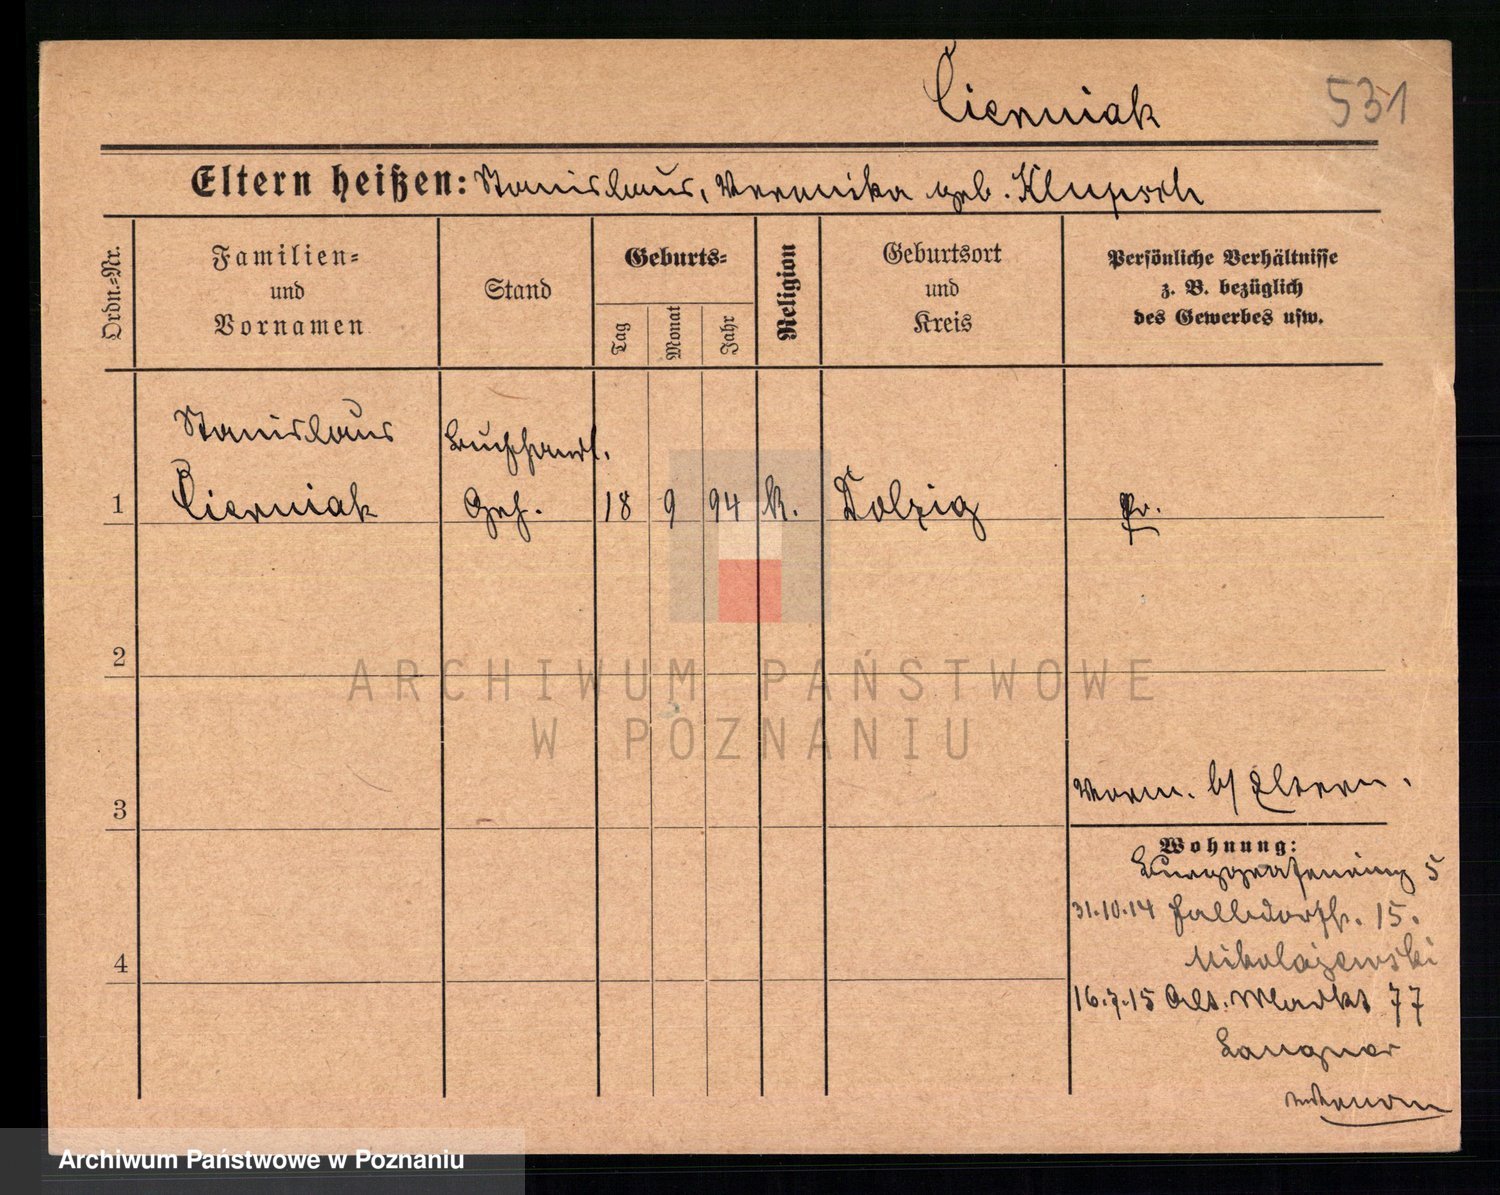 Cierniak 531
Eltern heißen: Stanislaus, Veronika geb. Klupsch
Ordn.-Nr. Familien- und Vornamen Stand Geburts- Tag Monat Jahr Religion Geburtsort und Kreis Persönliche Verhältnisse z. B. bezüglich des Gewerbes usw.
Stanislaus Buchhandl.
1 Cierniak Geh. 18 9 94 k. Dolzig Pr.
2
ARCHIWUM PAŃSTWOWE
W POZNANIU
3 Vorm. b/ Eltern.
Wohnung:
Burggrafenring 5
31.10.14 Halbdorfstr. 15.
4 Mikolajewski
16.7.15 Alt. Markt 77
Langner
Archiwum Państwowe w Poznaniu